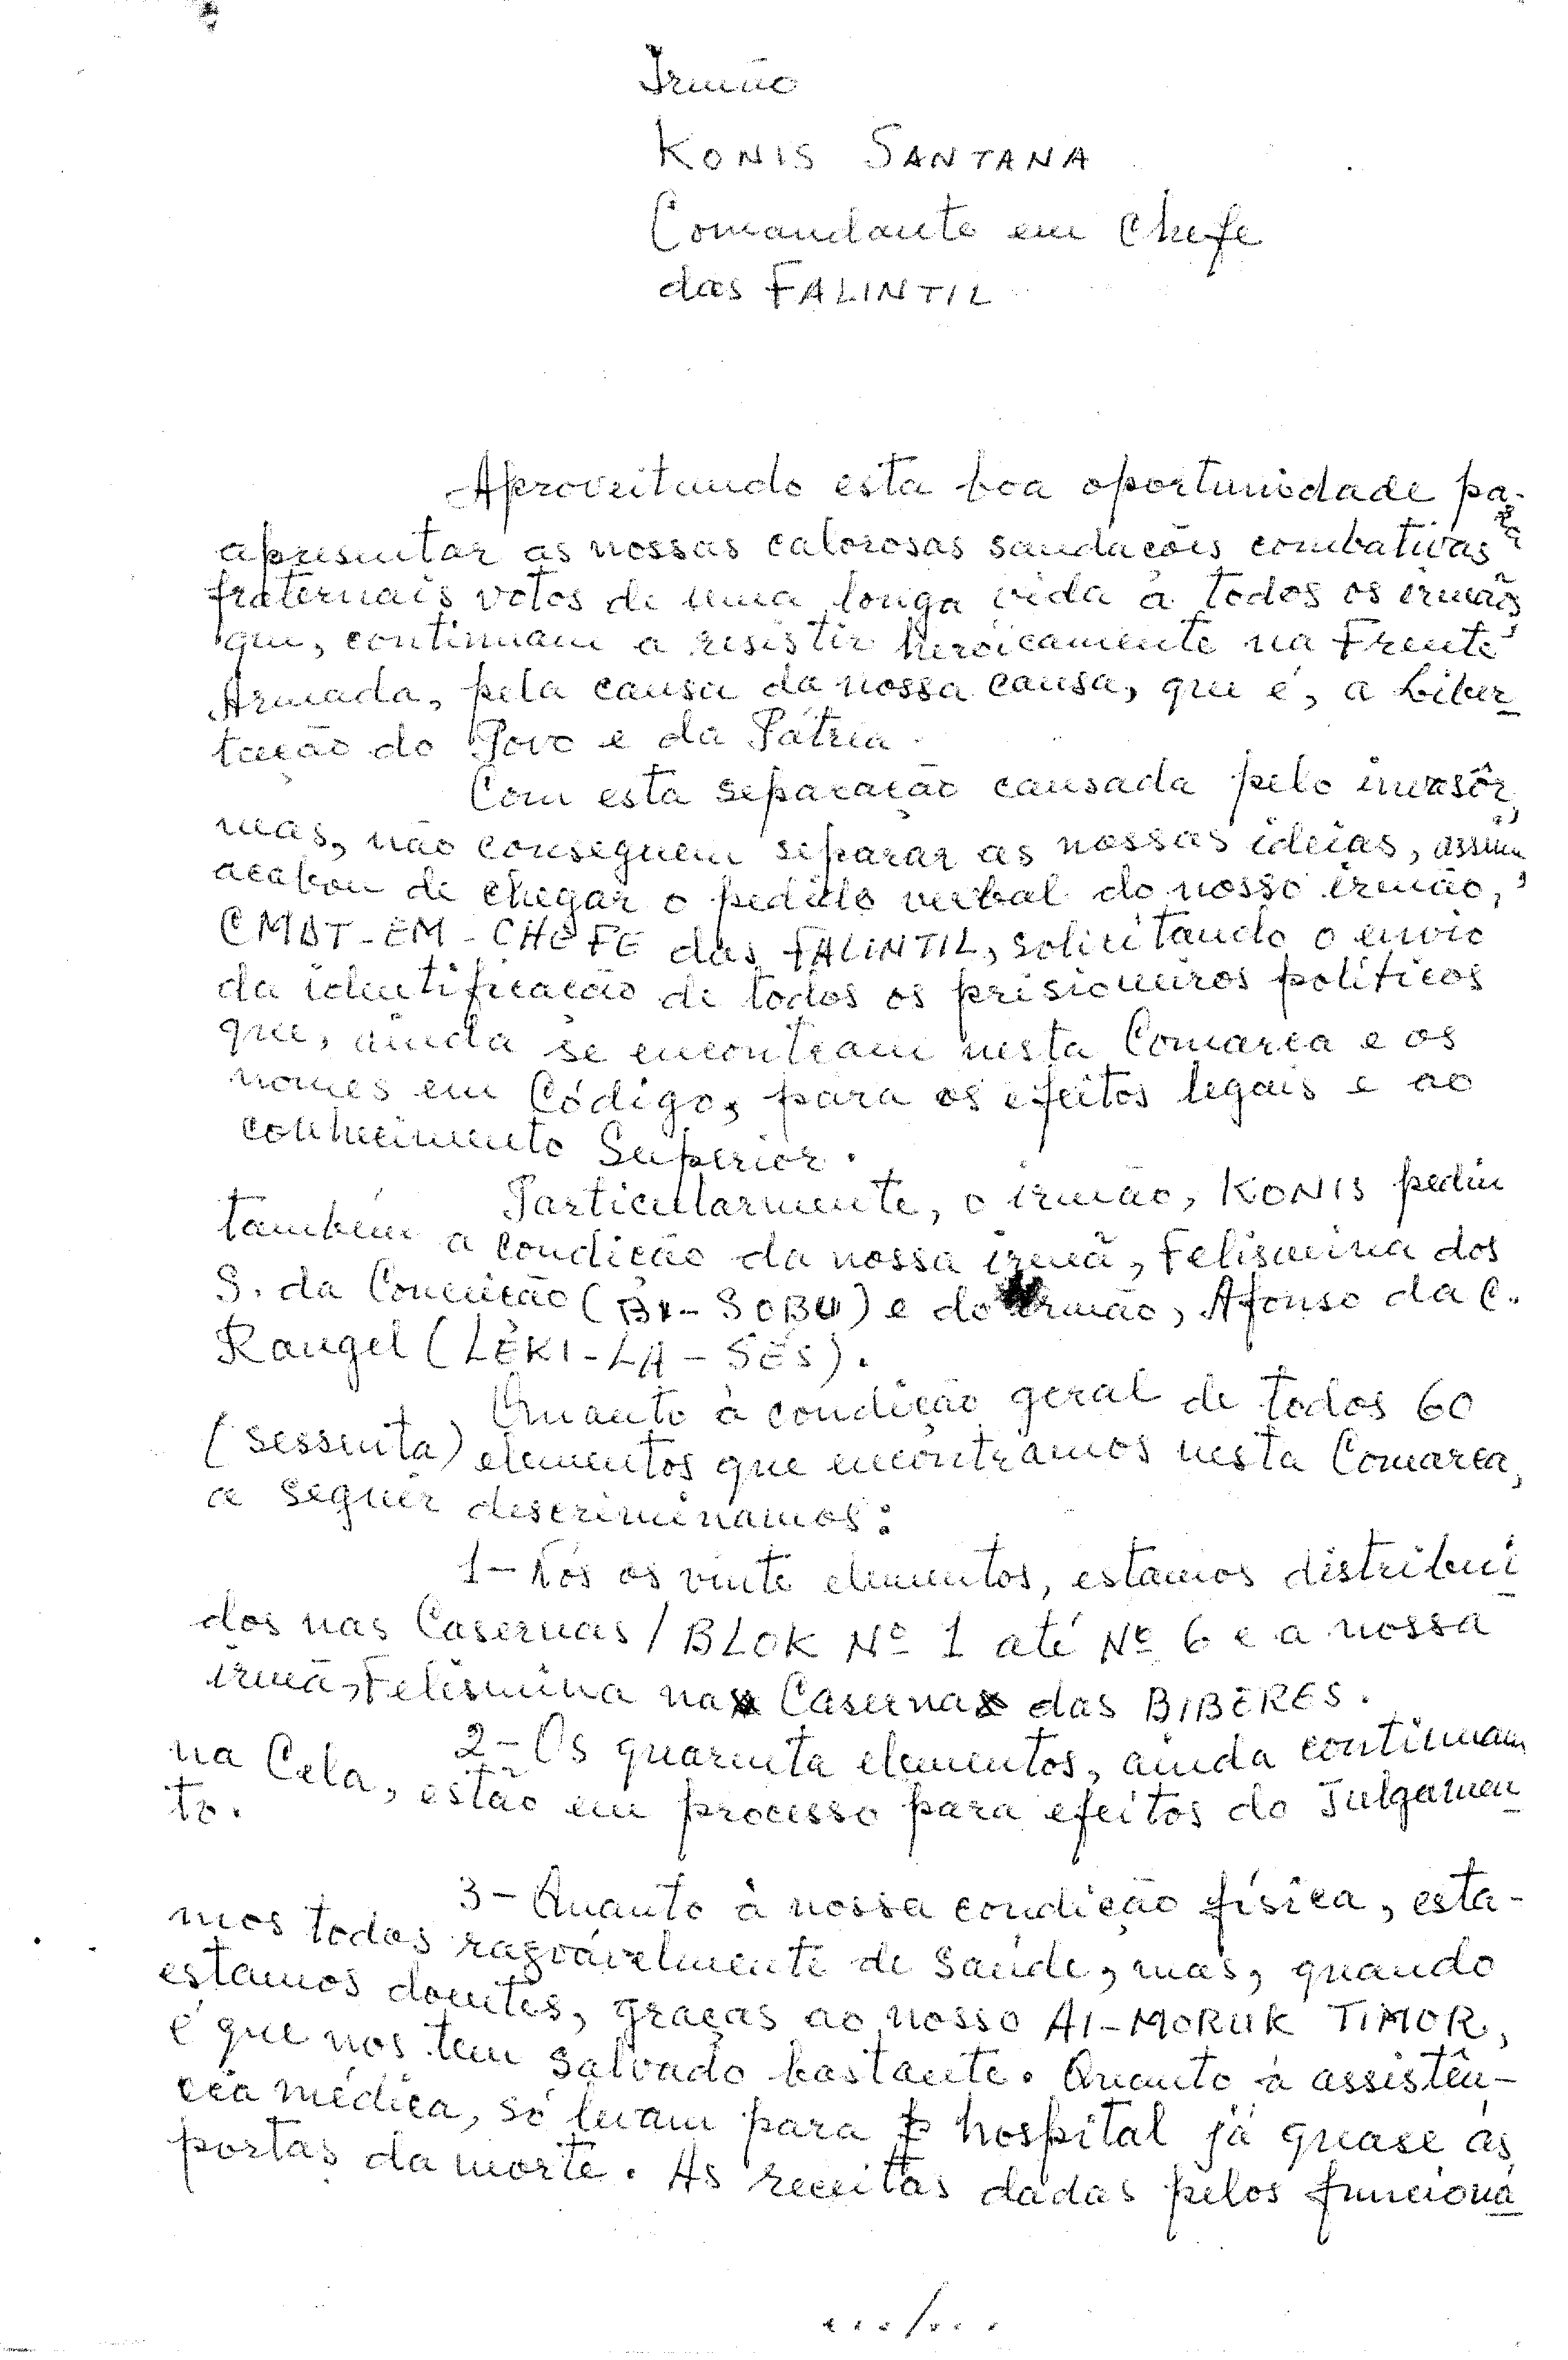 Irmão
KONIS SANTANA
Comandante em Chefe
das FALINTIL
Aproveitando esta boa oportunidade pa-
ra
apresentar as nossas calorosas saudações combativas
fraternais votos de uma longa vida a todos os irmãos
que, continuam a resistir heroicamente na Frente
Armada, pela causa da nossa causa, que é, a Liber
tação do Povo e da Pátria.
Com esta separação causada pelo invasôr,
mas, não conseguem separar as nossas ideias, assim
acabou de chegar o pedido verbal do nosso irmão,
CMDT-EM-CHEFE das FALINTIL, solicitando o envio
da identificação de todos os prisioneiros políticos
que, ainda se encontram nesta Comarca e os
nomes em Código, para os efeitos legais e ao
conhecimento Superior.
Particularmente, o irmão, KONIS pediu
também a condição da nossa irmã, Felismina dos
S. da Conceição (BI-SOBU) e do irmão, Afonso da C.
Rangel (LÉKI-LA-SÉS).
Quanto à condição geral de todos 60
(sessenta) elementos que encontramos nesta Comarca,
a seguir descriminamos:
1- Nós os vinte elementos, estamos distribuí
dos nas Casernas/BLOK Nº 1 até Nº 6 e a nossa
irmã, Felismina na Caserna das BIBERES.
2- Os quarenta elementos, ainda continuam
na Cela, estão em processo para efeitos do Julgamen
to.
3- Quanto à nossa condição física, esta-
mos todos razoávelmente de saúde, mas, quando
estamos doentes, graças ao nosso AI-MORUK TIMOR,
é que nos tem salvado bastante. Quanto à assistên-
cia médica, só levam para hospital já quase às
portas da morte. As receitas dadas pelos funcioná
.../...